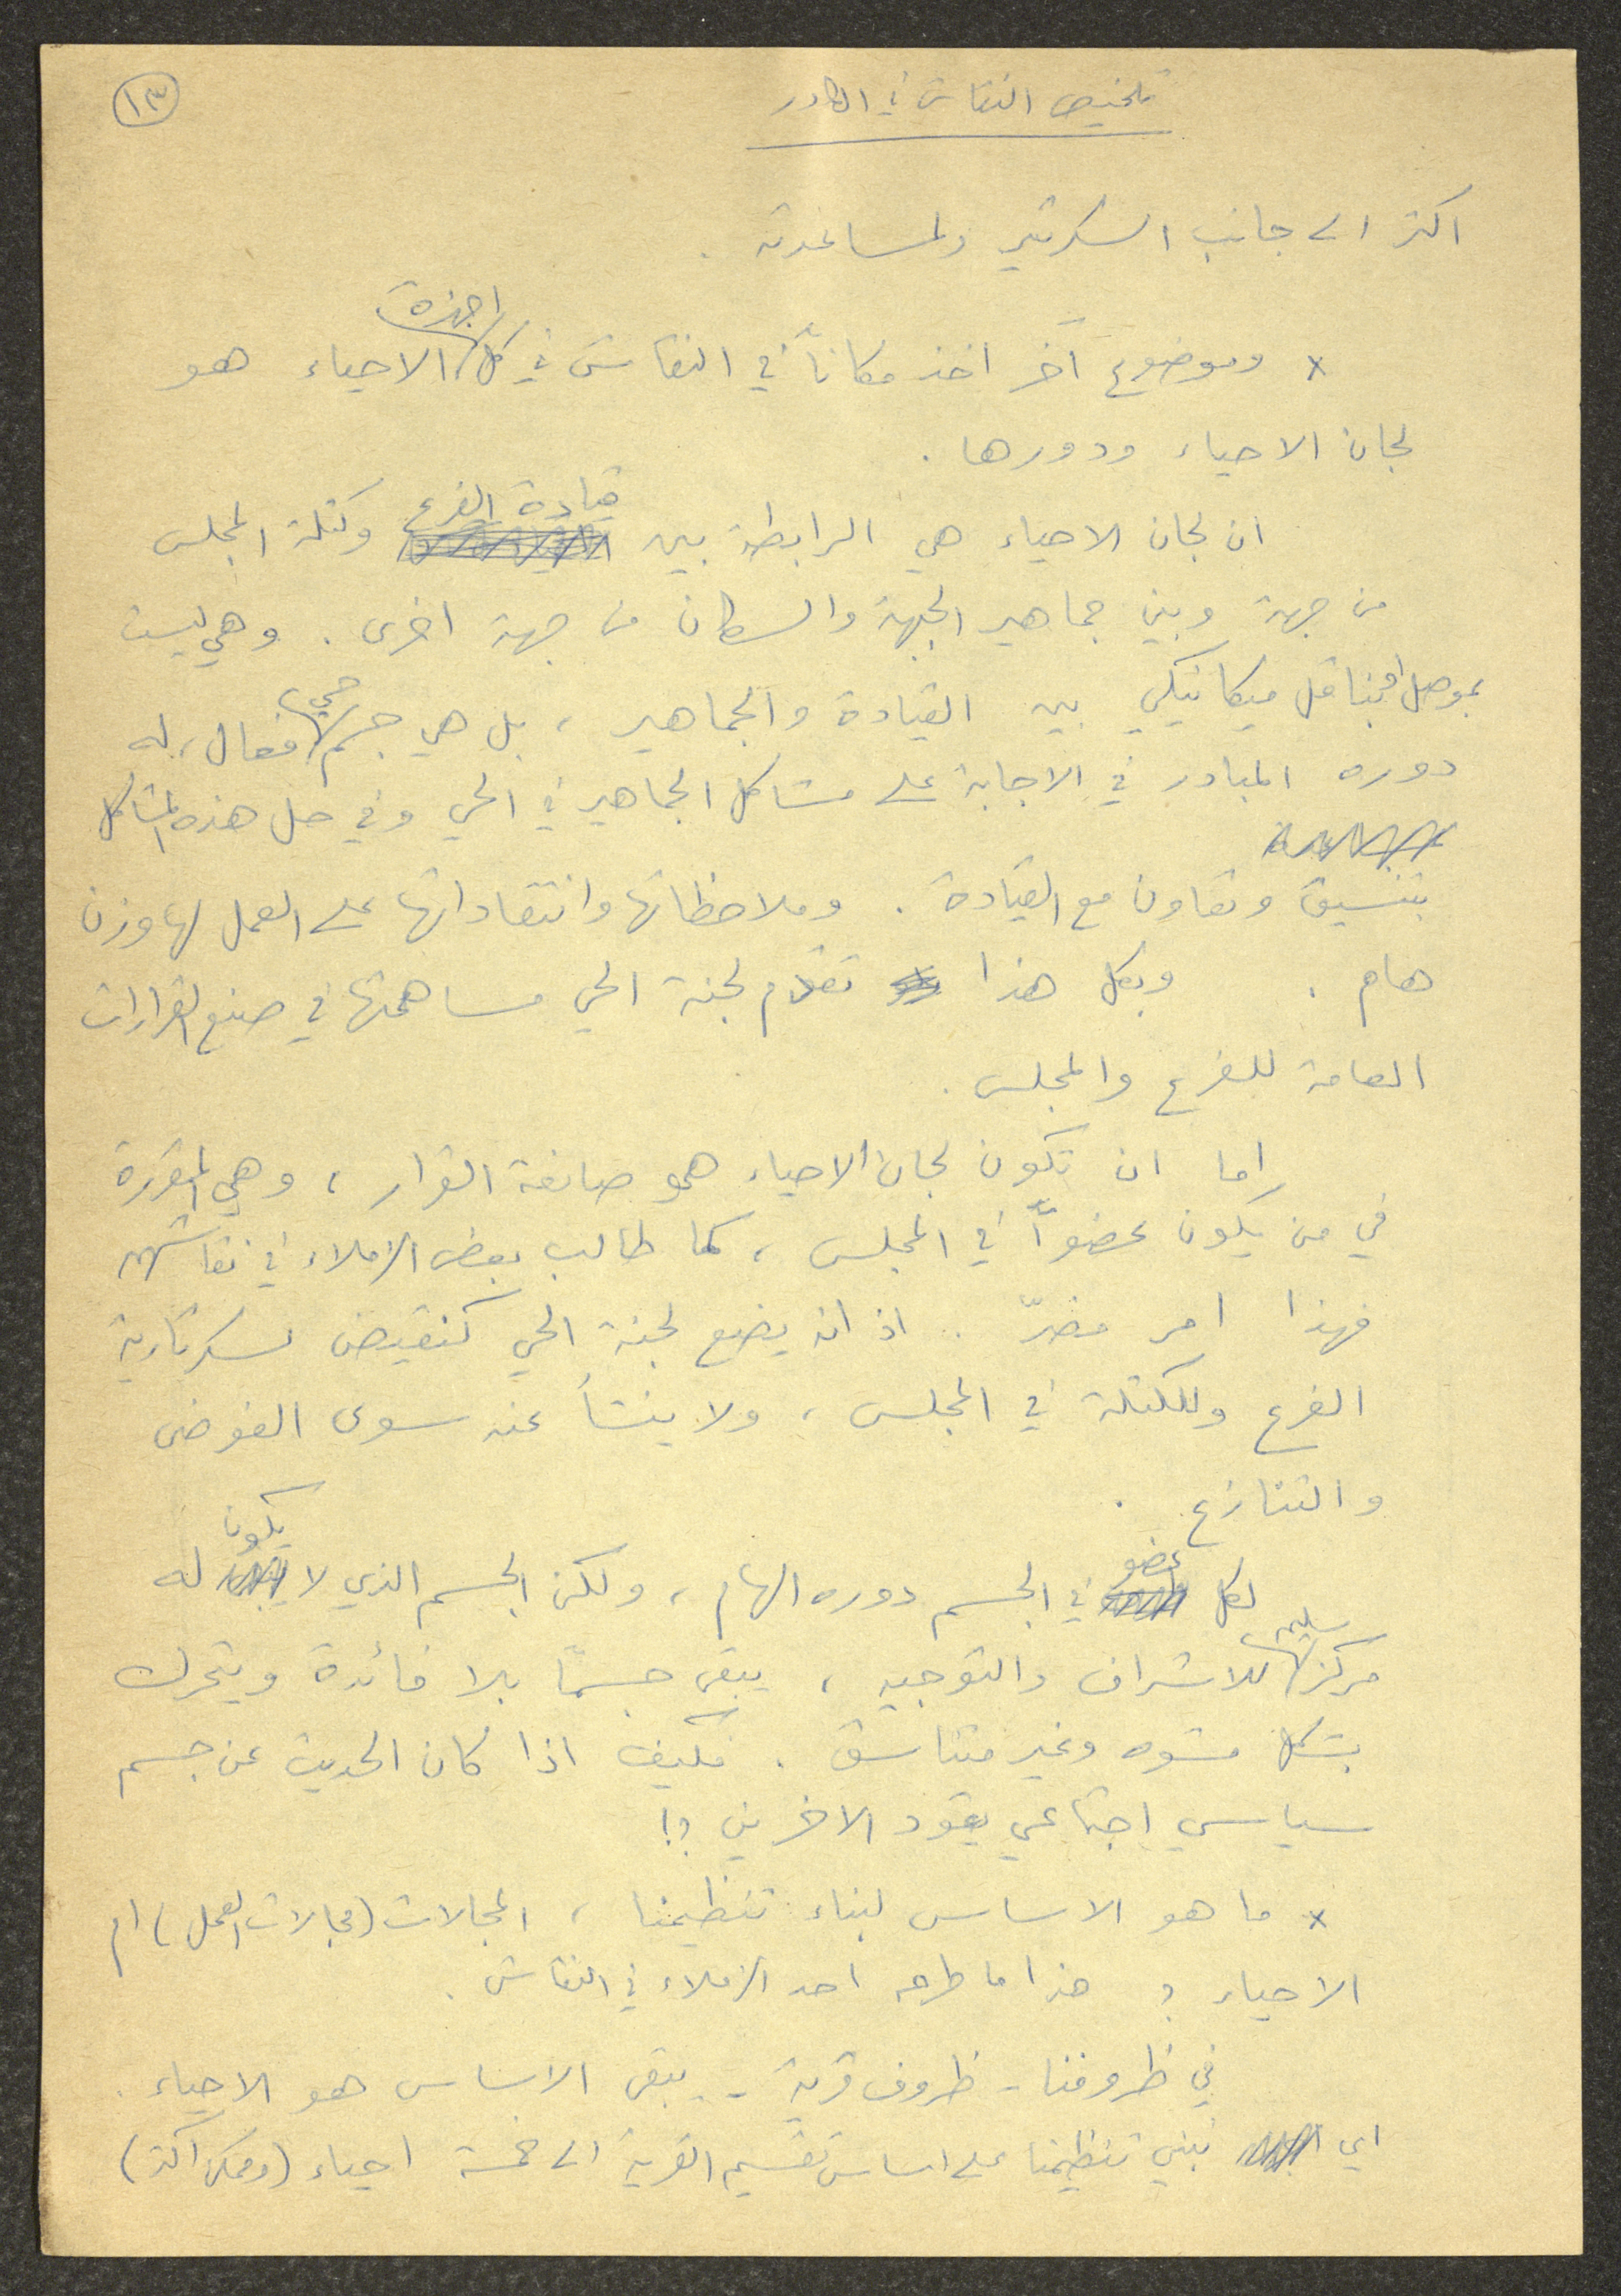 ١٣
تلخيص النقاش في الكادر
اكثر الى جانب السكرتير ولمساعدته .
* وموضوع آخر اخذ مكاناً في النقاش في كل اجهزة الاحياء هو
لجان الاحياء ودورها .
ان لجان الاحياء هي الرابطة بين قيادة الفرع وكتلة المجلس
من جهة وبين جماهير الجبهة والسكان من جهة اخرى . وهي ليست
بموصل او بناقل ميكانيكي بين القيادة والجماهير ، بل هي جسم حي فعال ، له
دوره المبادر في الاجابة على مشاكل الجماهير في الحي وفي حل هذه المشاكل
بتنسيق وتعاون مع القيادة . وملاحظاتها وانتقاداتها على العمل لها وزن
هام . وبكل هذا تقدم لجنة الحي مساهمتها في صنع القرارات
العامة للفرع والمجلس .
اما ان تكون لجان الاحياء هي صانعة القرار ، وهي المقررة
في من يكون عضواً في المجلس ، كما طالب بعض الزملاء في نقاشهم
فهذا امر مضرّ . اذ انه يضع لجنة الحي كنقيض لسكرتارية
الفرع وللكتلة في المجلس ، ولا ينشأ عنه سوى الفوضى
والتنازع .
لكل عضو في الجسم دوره الهام ، ولكن الجسم الذي لا يكون له
مركز سليم للاشراف والتوجيه ، يبقى جسمًا بلا فائدة ويتحرك
بشكل مشوه وغير متناسق . فكيف اذا كان الحديث عن جسم
سياسي اجتماعي يقود الاخرين ؟!
* ما هو الاساس لبناء تنظيمنا ، المجالات (مجالات العمل) ام
الاحياء ؟ هذا ما طرحه احد الزملاء في النقاش .
في ظروفنا - ظروف قرية - يبقى الاساس هو الاحياء .
اي نبني تنظيمنا على اساس تقسيم القرية الى خمسة احياء (وممكن اكثر)